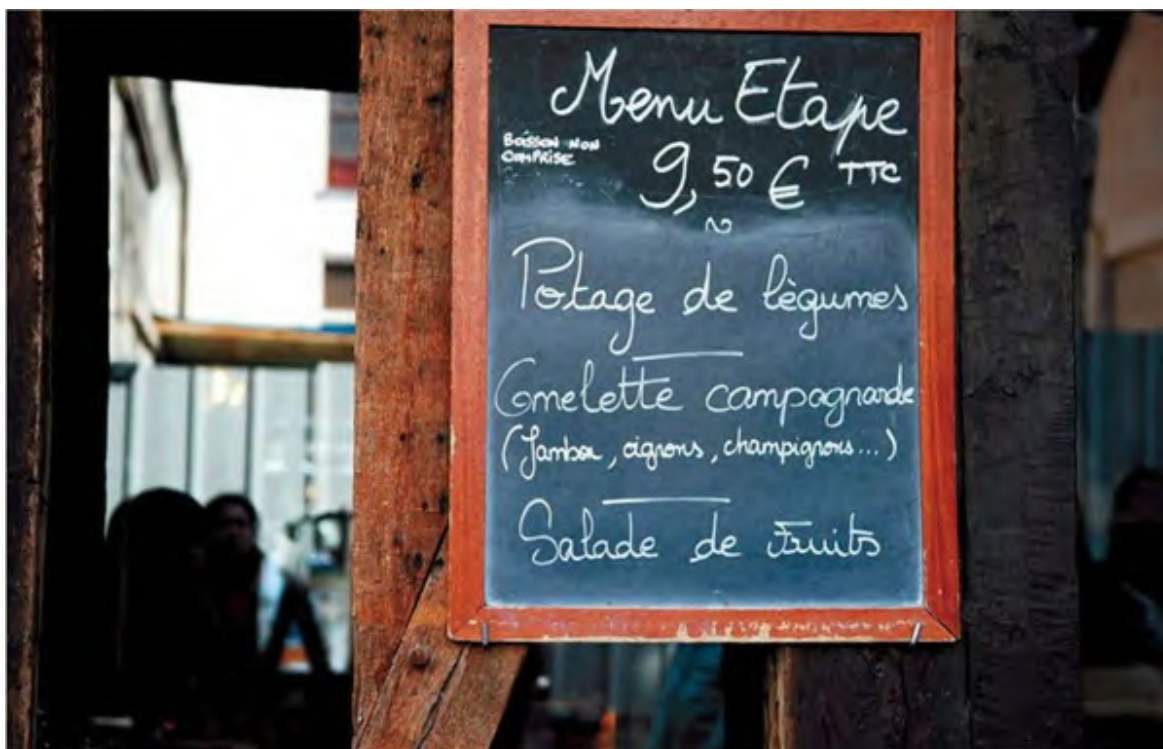 Menu Etape
BOISSON NON
COMPRISE
9,50 € TTC
Potage de légumes
Omelette campagnarde
(Jambon, oignons, champignons...)
Salade de Fruits